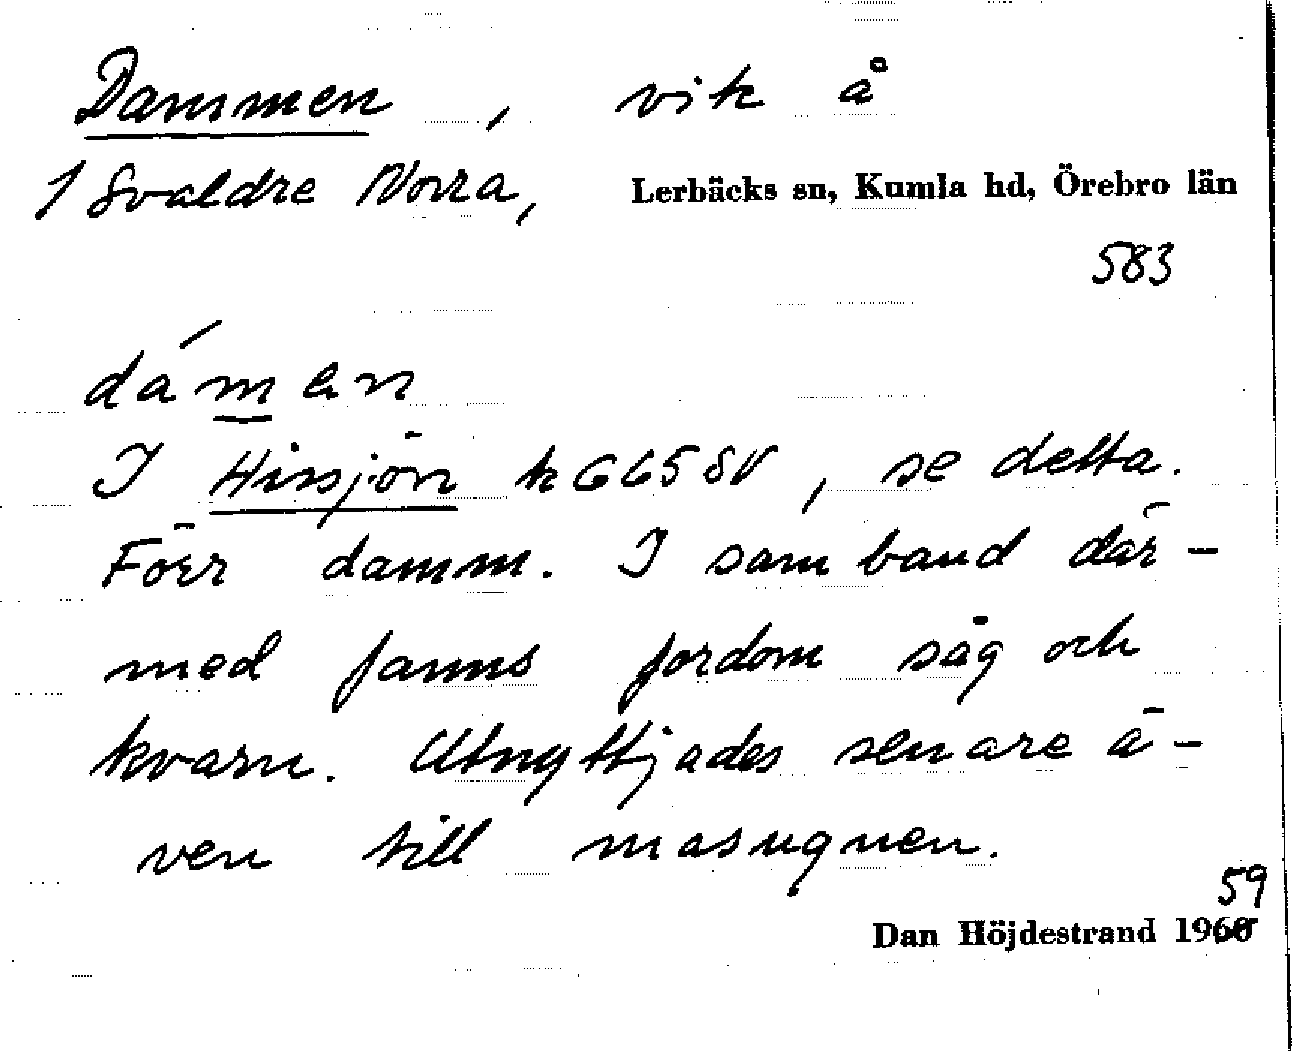 Dammen, vik å
1 Svaldre Norra, Lerbäcks sn, Kumla hd, Örebro län
583
dámen
I Hissjön k GG5 SV, se detta.
Förr damm. I samband där-
med fanns fordom såg och
kvarn. Utnyttjades senare ä-
ven till masugnen.
59
Dan Höjdestrand 1960